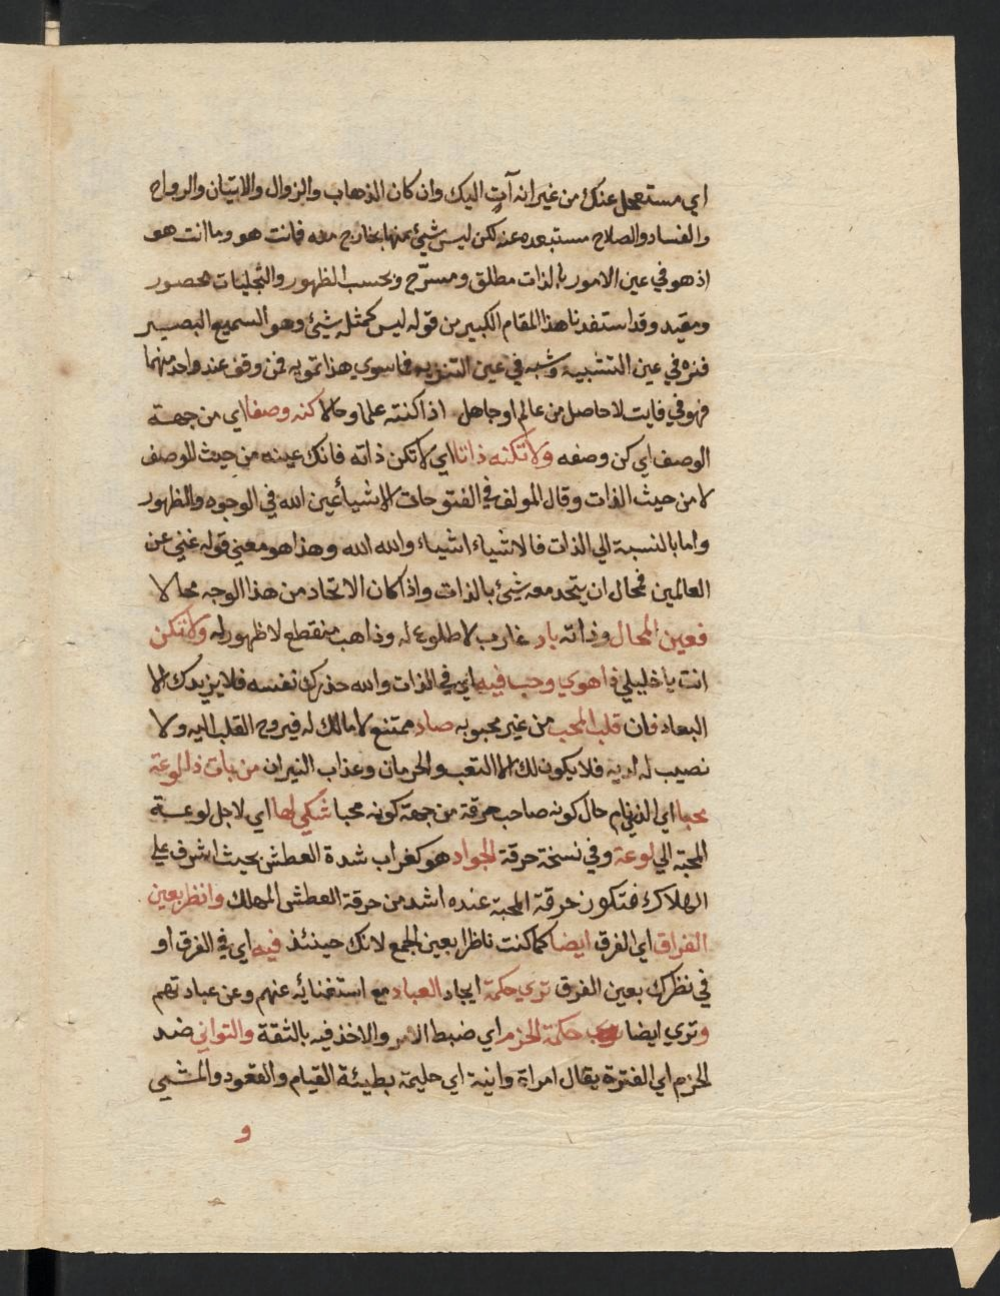 اي مستعجل عنك من غير انه آت اليك وان كان الذهاب والزوال والاتيان والرواح
والفساد والصلاح مستبعده عنه لكن ليس شيئ منها بخارج معه فانت هو وما انت هو
اذ هو في عين الامور بالذات مطلق ومسرّح وبحسب الظهور والتجليات محصور
ومقيد وقد استفدنا هذا المقام الكبير من قوله ليس كمثله شيئ وهو السميع البصير
فنزه في عين التشبيه وشبه في عين التنزيه فما سوي هذا تمويه فمن وقف عند واحد منهما
فهو في فايت لا حاصل من عالم او جاهل اذا كنته علما وحالا كنه وصفا اي من جهة
الوصف اي كن وصفه ولا تكنه ذاتا اي لا تكن ذاته فانك عينه من حيث الوصف
لا من حيث الذات وقال المولف في الفتوحات الاشيأ عين الله في الوجوه والظهور
واما بالنسبة الي الذات فالاشياء اشياء والله الله وهذا هو معني قوله غني عن
العالمين فمحال ان يتحد معه شيئ بالذات واذا كان الاتحاد من هذا الوجه محالا
فعين المحال وذاته باد غارب لا طلوع له وذاهب منقطع لا ظهور له ولا تكن
انت يا خليلي ذا هوي وحب فيه اي في الذات والله حذرك نفسه فلا يزيدك الا
البعاد فان قلب المحب من غير محبوبه صاد ممتنع لا مالك له فيروح القلب اليه ولا
نصيب له لديه فلا يكون لك الا التعب والحرمان وعذاب النيران من بات ذا لوعة
محبا اي الذي نام حال كونه صاحب حرقة من جهة كونه محبا شكي لها اي لاجل لوعة
المحبة الي لوعة وفي نسخة حرقة الجواد هو كغراب شدة العطش بحيث اشرف علي
الهلاك فتكون حرقة المحبة عنده اشد من حرقة العطش المهلك وانظر بعين
الفراق اي الفرق ايضا كما كنت ناظرا بعين الجمع لانك حينئذ فيه اي في الفرق او
في نظرك بعين الفرق تري حكمة ايجاد العباد مع استغنائه عنهم وعن عبادتهم
وتري ايضا حكمة الحزم اي ضبط الامر والاخذ فيه بالثقة والتواني ضد
الحزم اي الفترة يقال امراة وانية اي حليمة بطيئة القيام والقعود والمشيي
و